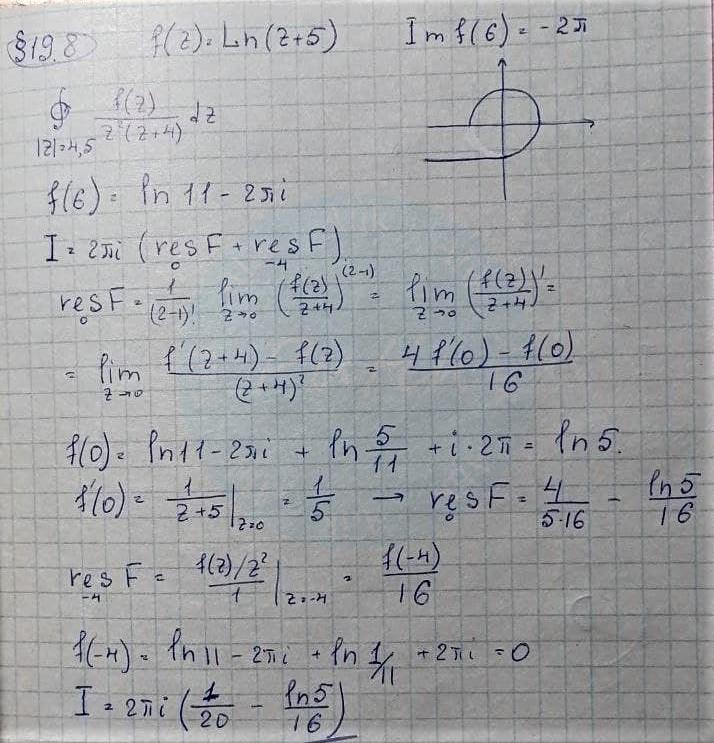 §19.8 f(z) = Ln(z+5) Im f(6) = -2π
∮_{|z|=4,5} f(z)/(z²(z+4)) dz
f(6) = ln 11 - 2πi
I = 2πi (res_0 F + res_{-4} F)
res_0 F = 1/(2-1)! lim_{z→0} (f(z)/(z+4))^{(2-1)} = lim_{z→0} (f(z)/(z+4))' =
= lim_{z→0} (f'(z+4) - f(z))/(z+4)² = (4f'(0) - f(0))/16
f(0) = ln 11 - 2πi + ln 5/11 + i·2π = ln 5.
f'(0) = 1/(z+5)|_{z=0} = 1/5 → res_0 F = 4/(5·16) - ln5/16
res_{-4} F = (f(z)/z²)/1 |_{z=-4} = f(-4)/16
f(-4) = ln 11 - 2πi + ln 1/11 + 2πi = 0
I = 2πi (1/20 - ln5/16)